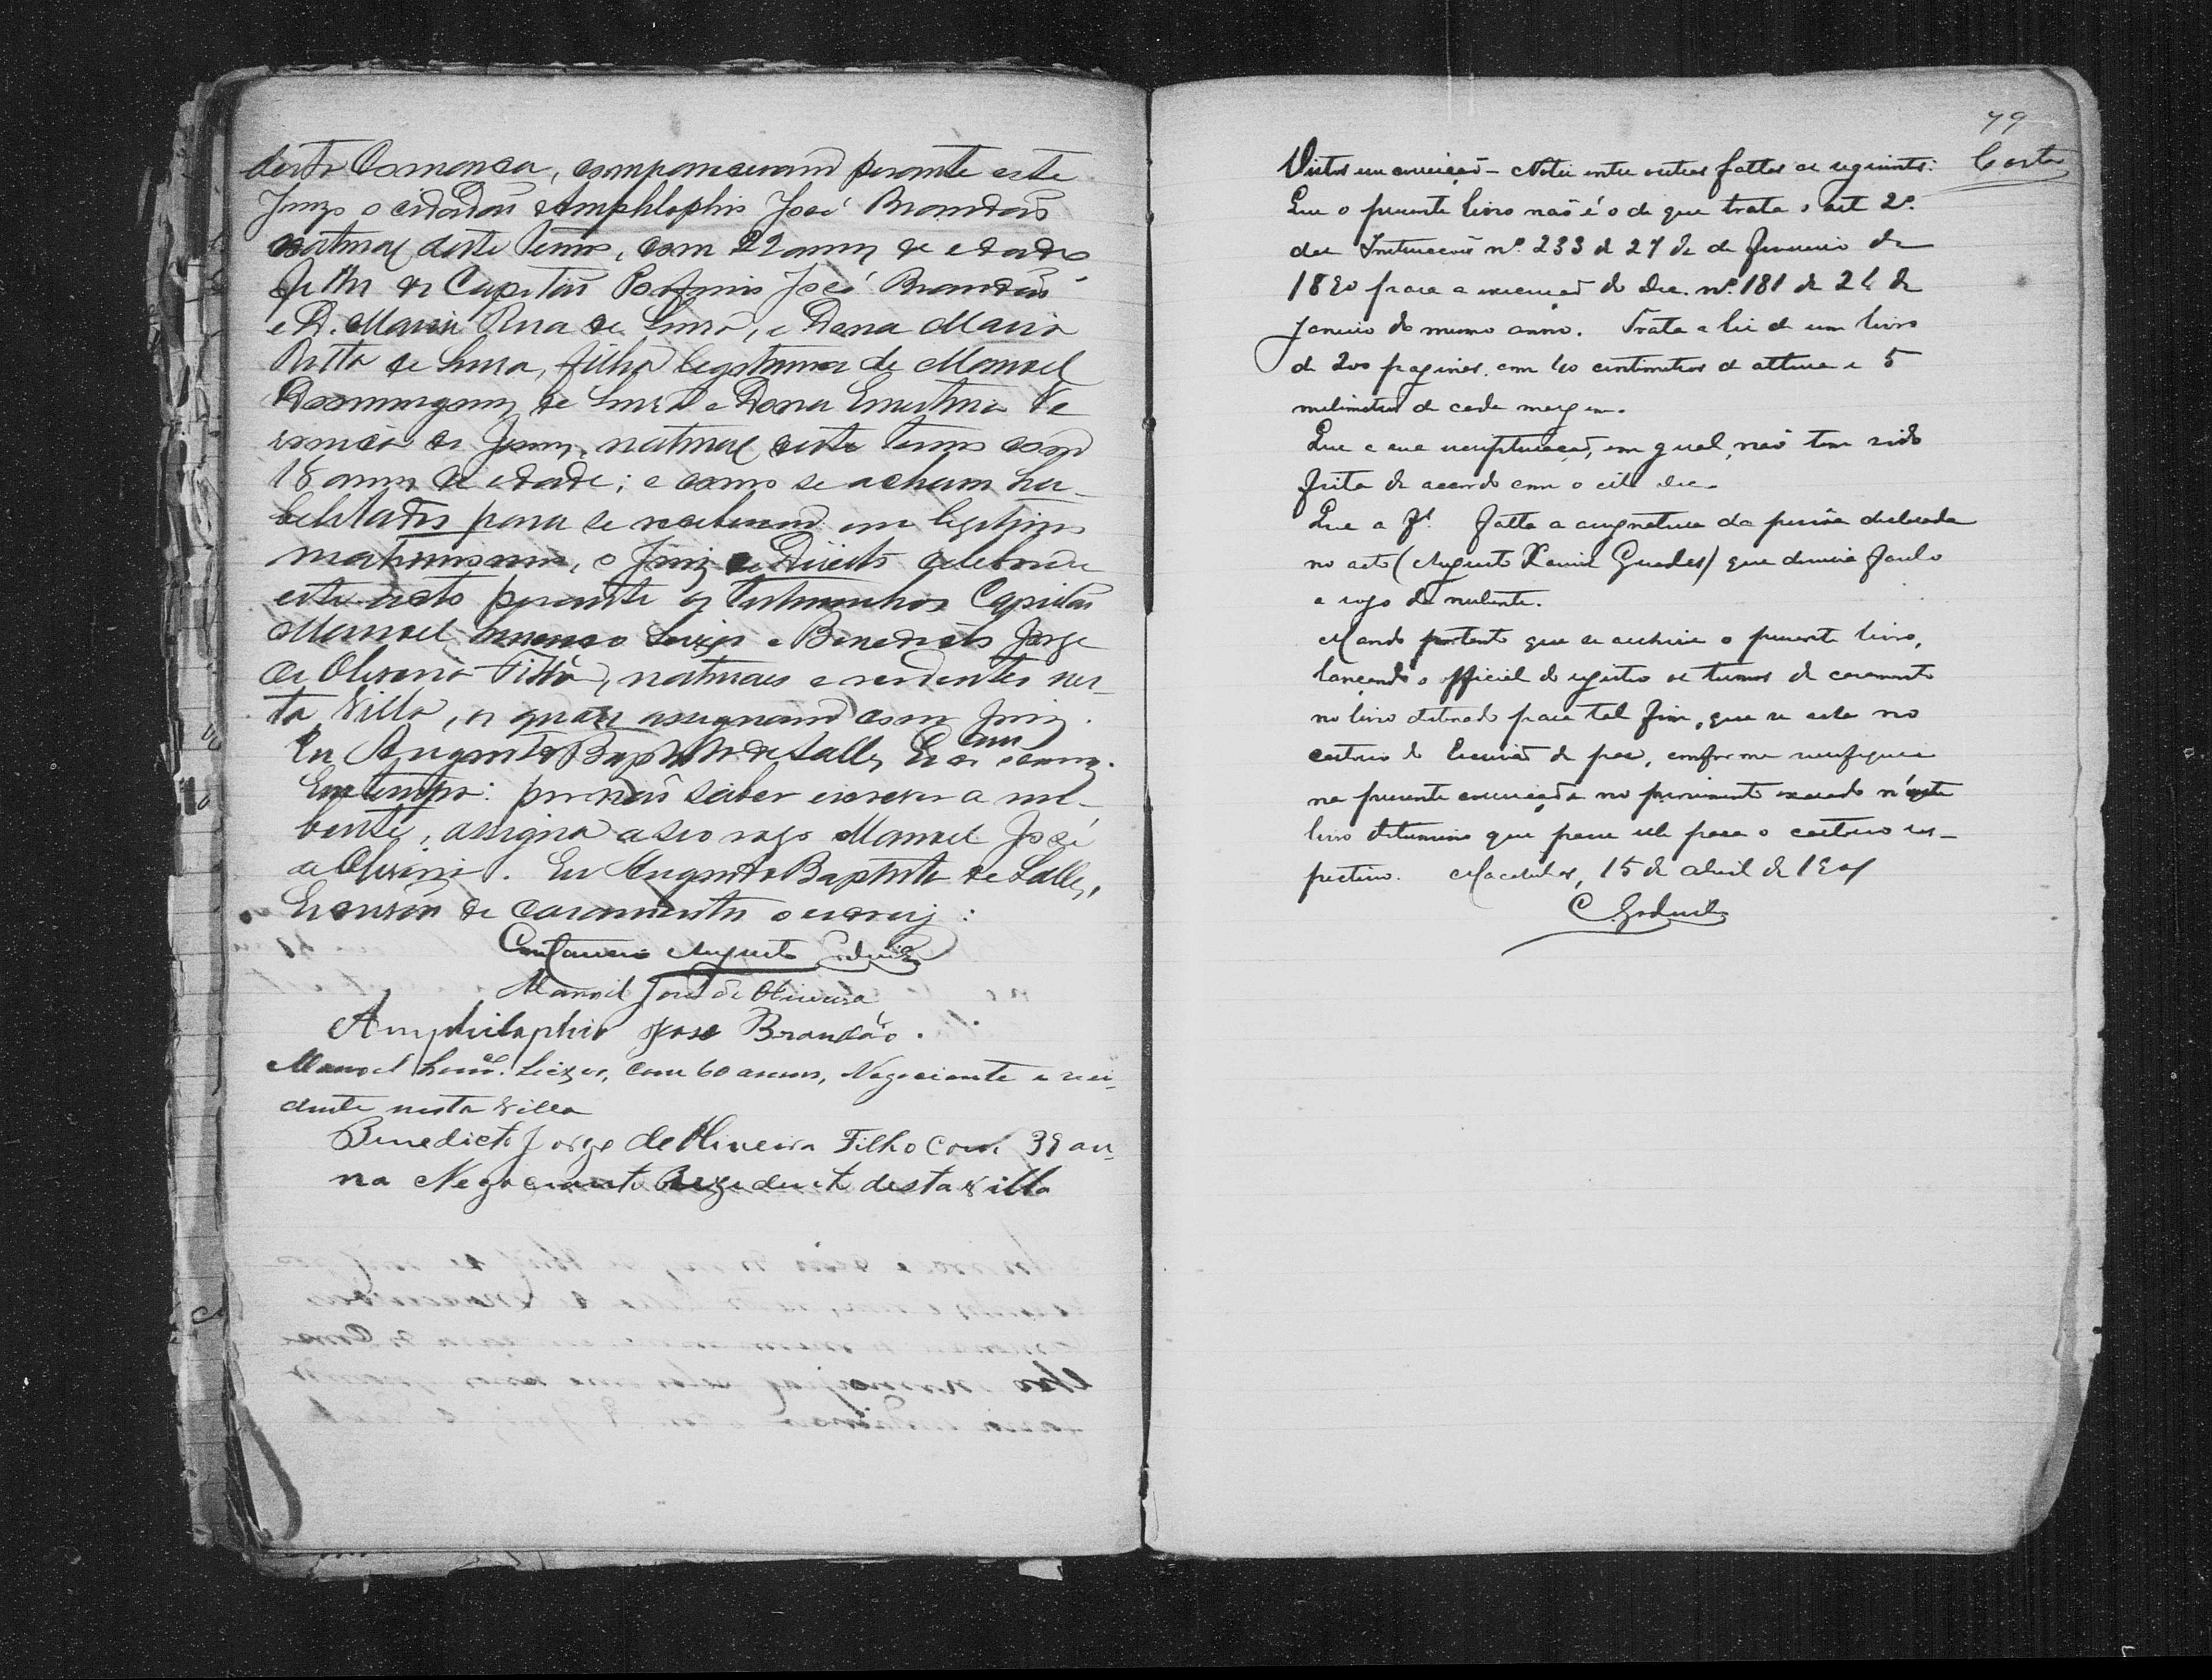 desta Comarca, compareceram perante este
Juizo o cidadão Amphilophio José Brandão
natural deste termo, com 22 annos de edade
filho de Capitão José Brandão
e D. Maria Rosa de, e Dona Maria
Ritta de, filha legitima de Manoel
Domingues de e Dona Ernestina
de Jesus, natural deste termo com
18 annos de edade; e como se acham ha-
belitados para se receberem em legitimo
matrimonio, o Juiz de Direito celebrou
este acto perante as testemunhas Capitão
Manoel Lourenço e Benedicto Jorge
de Oliveira Filho, naturaes e residentes nes-
ta Villa, os quaes assignam com Juiz.
Eu Augusto Baptista de Salles Escrivão o escrevy.
Em tempo: por não saber escrever a nu-
bente, assigna a seo rogo Manoel José
de Oliveira. Eu Augusto Baptista de Salles,
Escrivão de casamentos o escrevy:
Augusto
Manoel José de Oliveira
Amphilophio José Brandão.
Manoel Lourço., com 60 annos, Negociante e resi-
dente nesta Villa
Benedicto Jorge de Oliveira Filho com 39 an-
nos Negociante Rezedente desta villa
79
Vistos em correição – Notei entre outras faltas as seguintes:
Que o presente livro não é o de que trata o art 2º.
das Instrucções nº. 233 de 27 de de Fevereiro de
1890 para a execução do Dec. nº. 181 de 24 de
Janeiro do mesmo anno. Trata a lei de um livro
de 200 paginas, com 40 centimetros de altura e 5
milimetros de cada margem.
Que a sua escripturação, em geral, não tem sido
feita de accordo com o cit. dec.
Que a fl. falta a assignatura da pessôa declarada
no acto (Augusto Xavier Guedes) que deveria fazel-o
a rogo do nubente.
Mando portanto que se archive o presente livro,
lançando o official do registro os termos de casamento
no livro destinado para tal fim, que se acha no
cartorio do Escrivão de paz, conforme verifiquei
na presente correição e no provimento exarado n'este
livro determino que passe elle para o cartorio res-
pectivo. Macahubas, 15 de Abril de 1904